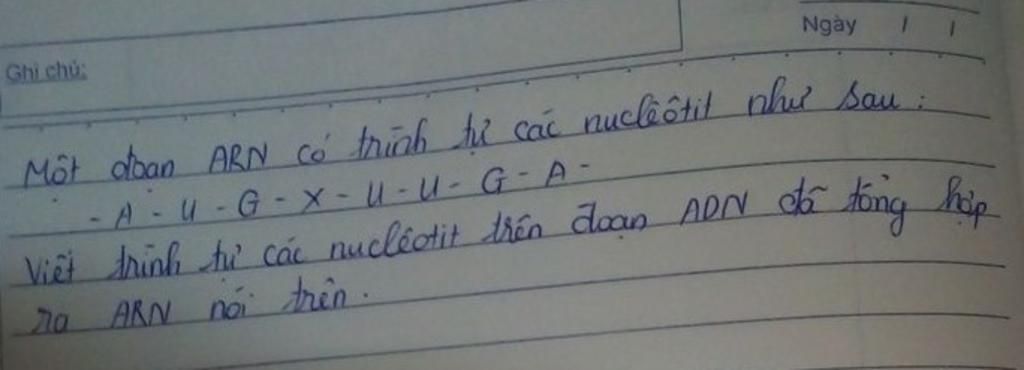 Ngày / /
Ghi chú:
Một đoạn ARN có trình tự các nuclêôtit như sau:
- A - U - G - X - U - U - G - A -
Viết trình tự các nuclêôtit trên đoạn ADN đã tổng hợp
ra ARN nói trên.